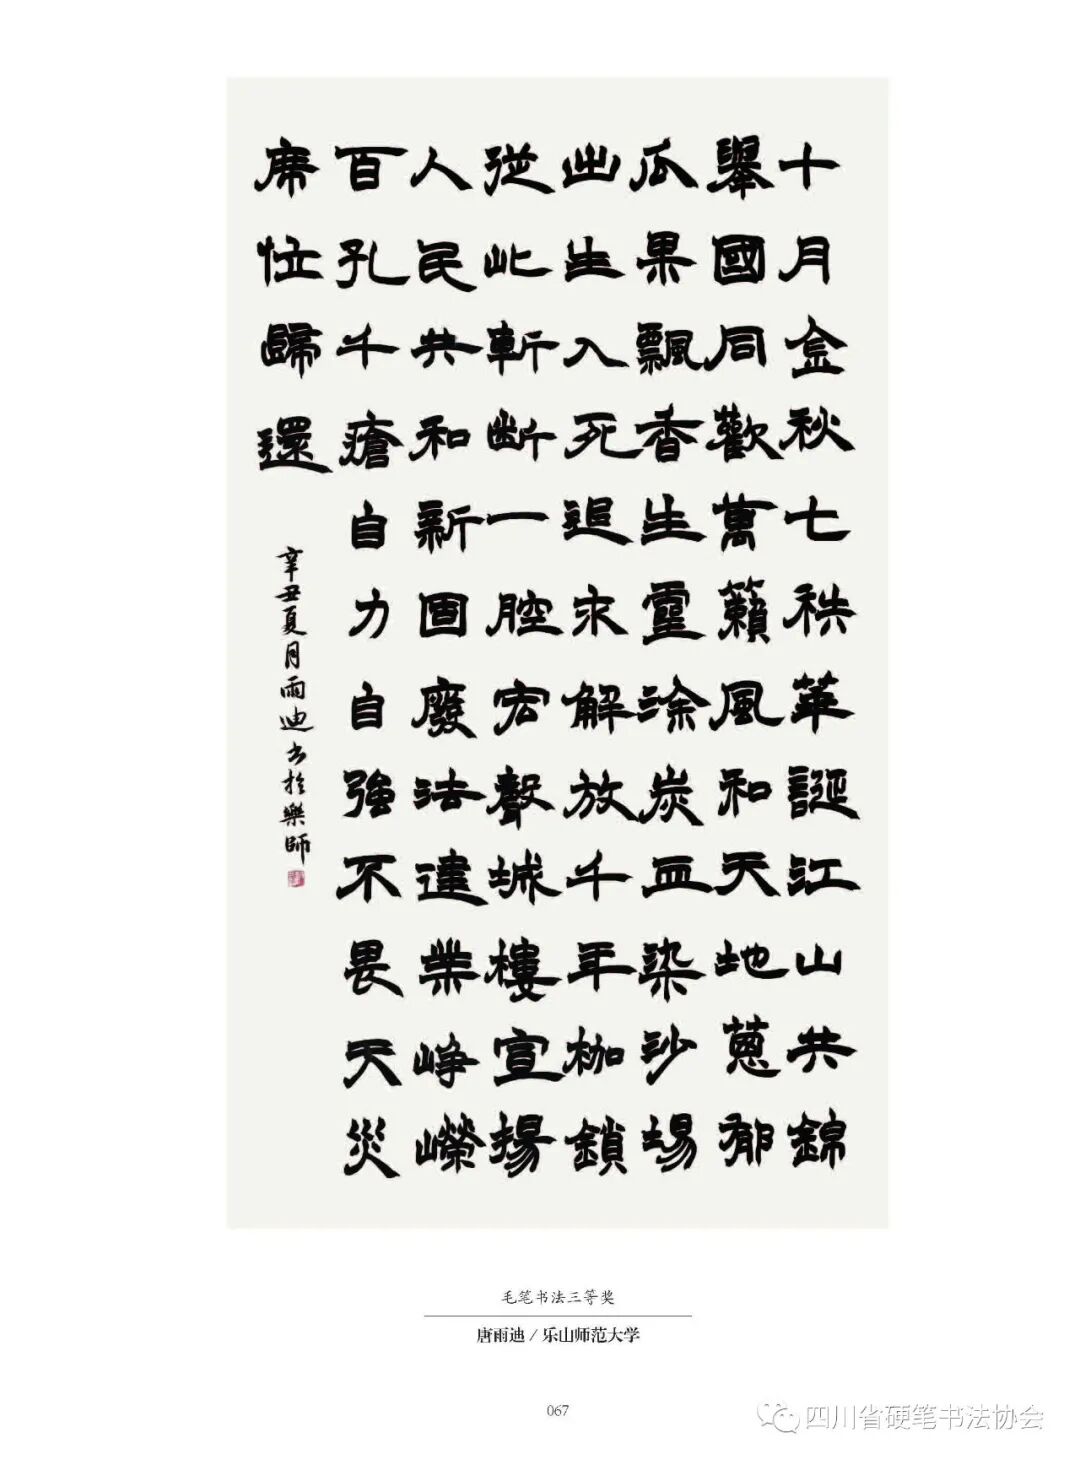 十月金秋七秩華誕江山共錦
舉國同歡萬籟風和天地蔥郁
瓜果飄香生靈涂炭血染沙場
出生入死追求解放千年枷鎖
從此斬斷一腔宏聲城樓宣揚
人民共和新國廢法建業崢嶸
百孔千瘡自力自強不畏天災
席位歸還
辛丑夏月雨迪书於樂師
毛笔书法三等奖
唐雨迪 / 乐山师范大学
067
四川省硬笔书法协会